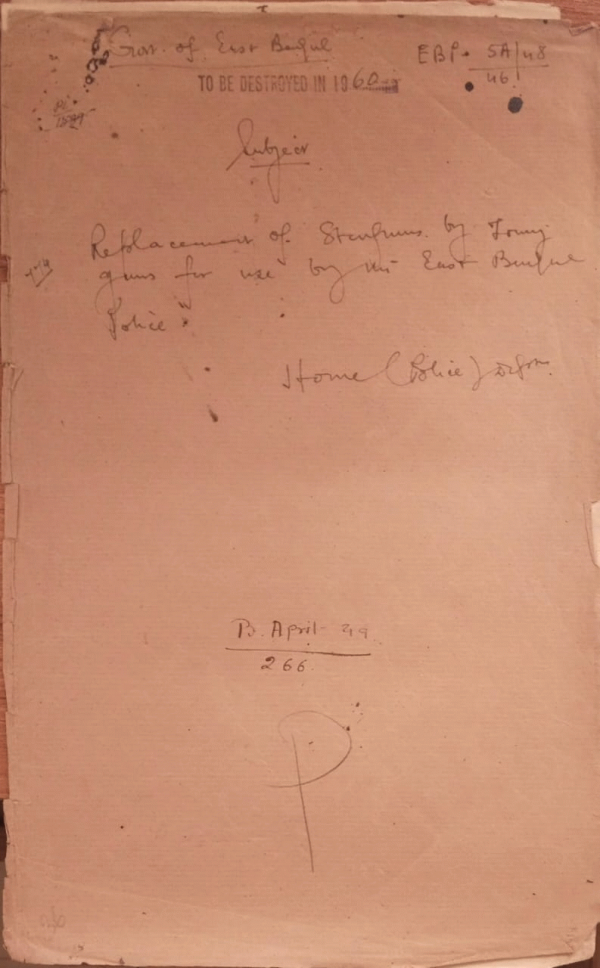 Govt. of East Bengal
EBP. 5A/48
46
TO BE DESTROYED IN 1960
Subject
Replacement of Stenguns by Tomy
guns for use by the East Bengal
Police
Home (Police)
B. April 49
266
P